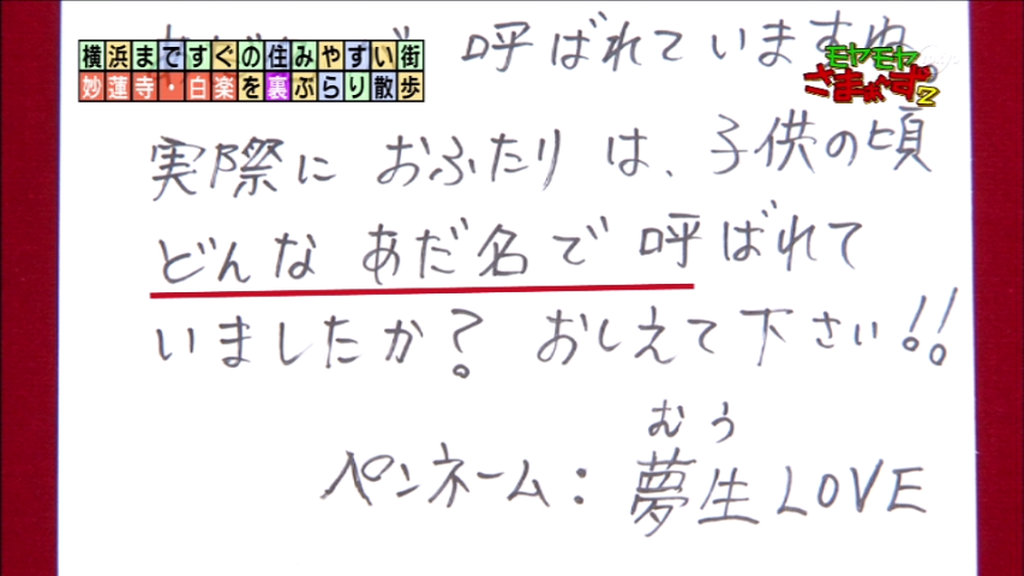 横浜まですぐの住みやすい街
妙蓮寺・白楽を裏ぶらり散歩
モヤモヤ
さまぁ~ず2
呼ばれていますね
実際に おふたり は、子供の頃
どんな あだ名 で 呼ばれて
いましたか? おしえて下さい!!
むう
ペンネーム:夢生LOVE